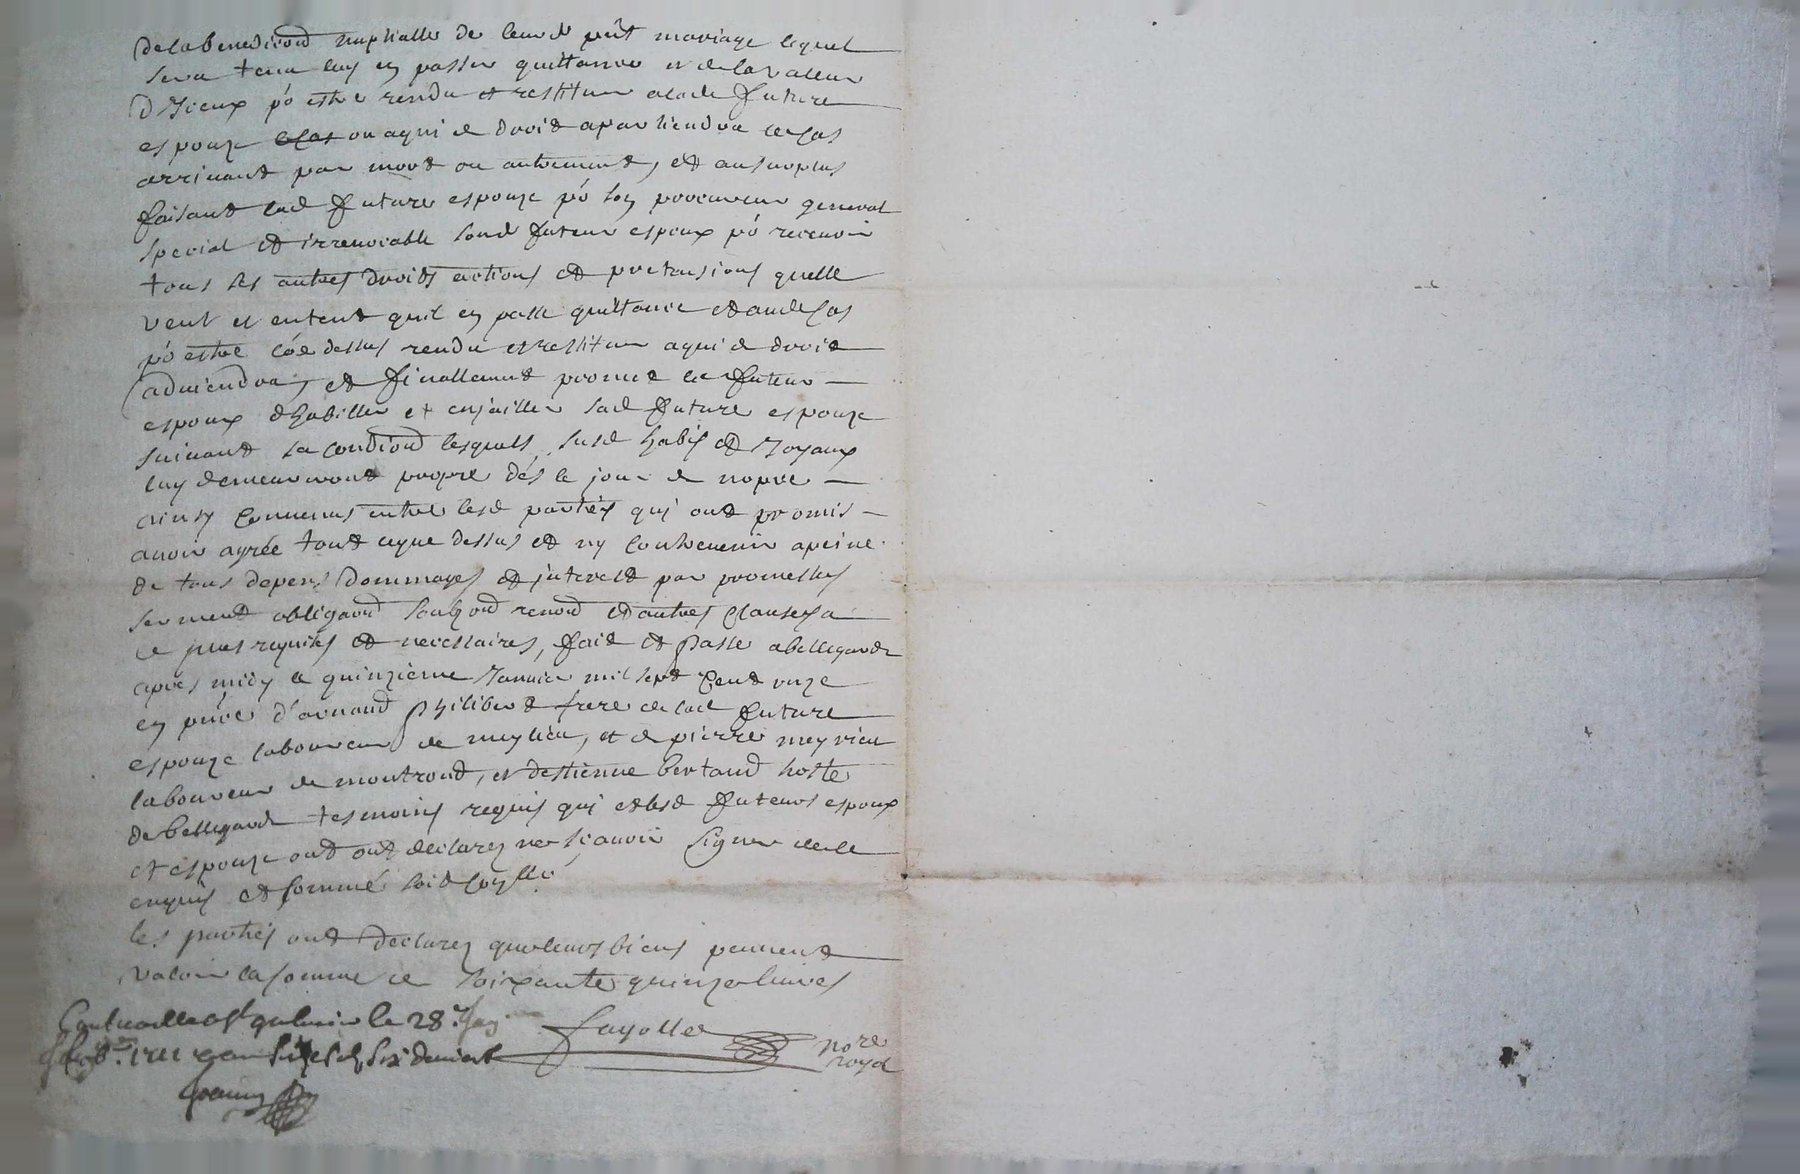 de la benediction nuptialle de leurd pñt mariage lequel
sera tenu luy en passer quittance et de la valleur
d'Iceux po estre rendu et restitue a lad future
espouze ou a qui de droit apartiendra le cas
arrivant par mort ou autrement, et au surplus
faisant lad future espouze po son procureur general
special et irrevocable sond futeur espoux po recevoir
tous ses autres droits actions et pretensions quelle
veut et entent quil en passe quittance et aud cas
po estre cõe dessus rendu et restitue a qui de droit
adviendra, et finallement promet led futeur
espoux d'habiller et enjailler sad future espouze
suivant sa condition lesquels susd habis et Joyaux
luy demeureront propre dés le jour de nopce
ainsy convenus entre lesd parties qui ont promis
avoir agrée tout ceque dessus et ny contrevenir apeine
de tous depens dommages et interest par promesses
serment obligaõn renõn et autres clauses a
ce plus requises et necessaires, fait et passe a bellegarde
apres midy le quinzieme Janvier mil sept cent onze
en pñce d'arnaud philibert frere de lad future
espouze laboureur de meylieu, et de pierre meyrieu
laboureur de montrond, et d'estienne bertaud hoste
de bellegarde tesmoins requis qui et lesd futeurs espoux
et espouze ont declarez ne sçavoir signer de ce
enquis et sommé soit scellé
les parties ont declarez que leurs biens peuvent
valoir la somme de soixante quinze livres
le 28
Fayolle
nore
royal
1711 six deniers